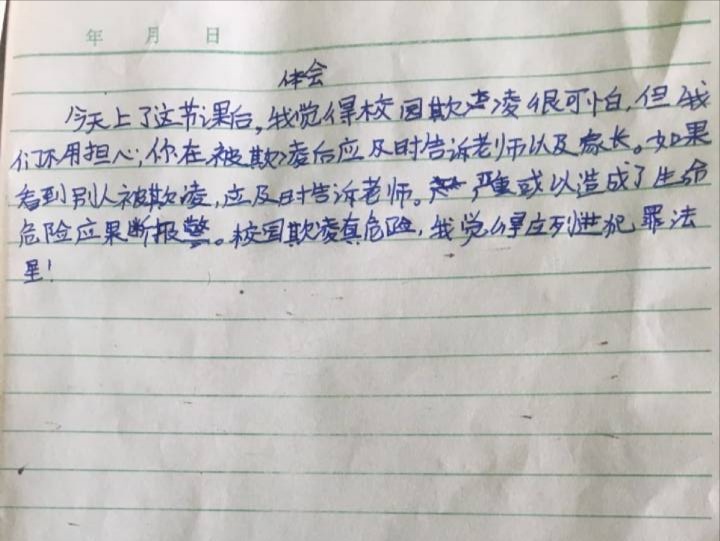 年 月 日
体会
今天上了这节课后,我觉得校园欺凌很可怕,但我
们不用担心;你在被欺凌后应及时告诉老师以及家长。如果
看到别人被欺凌,应及时告诉老师。严重或以造成了生命
危险应果断报警。校园欺凌真危险,我觉得应列进犯罪法
里!